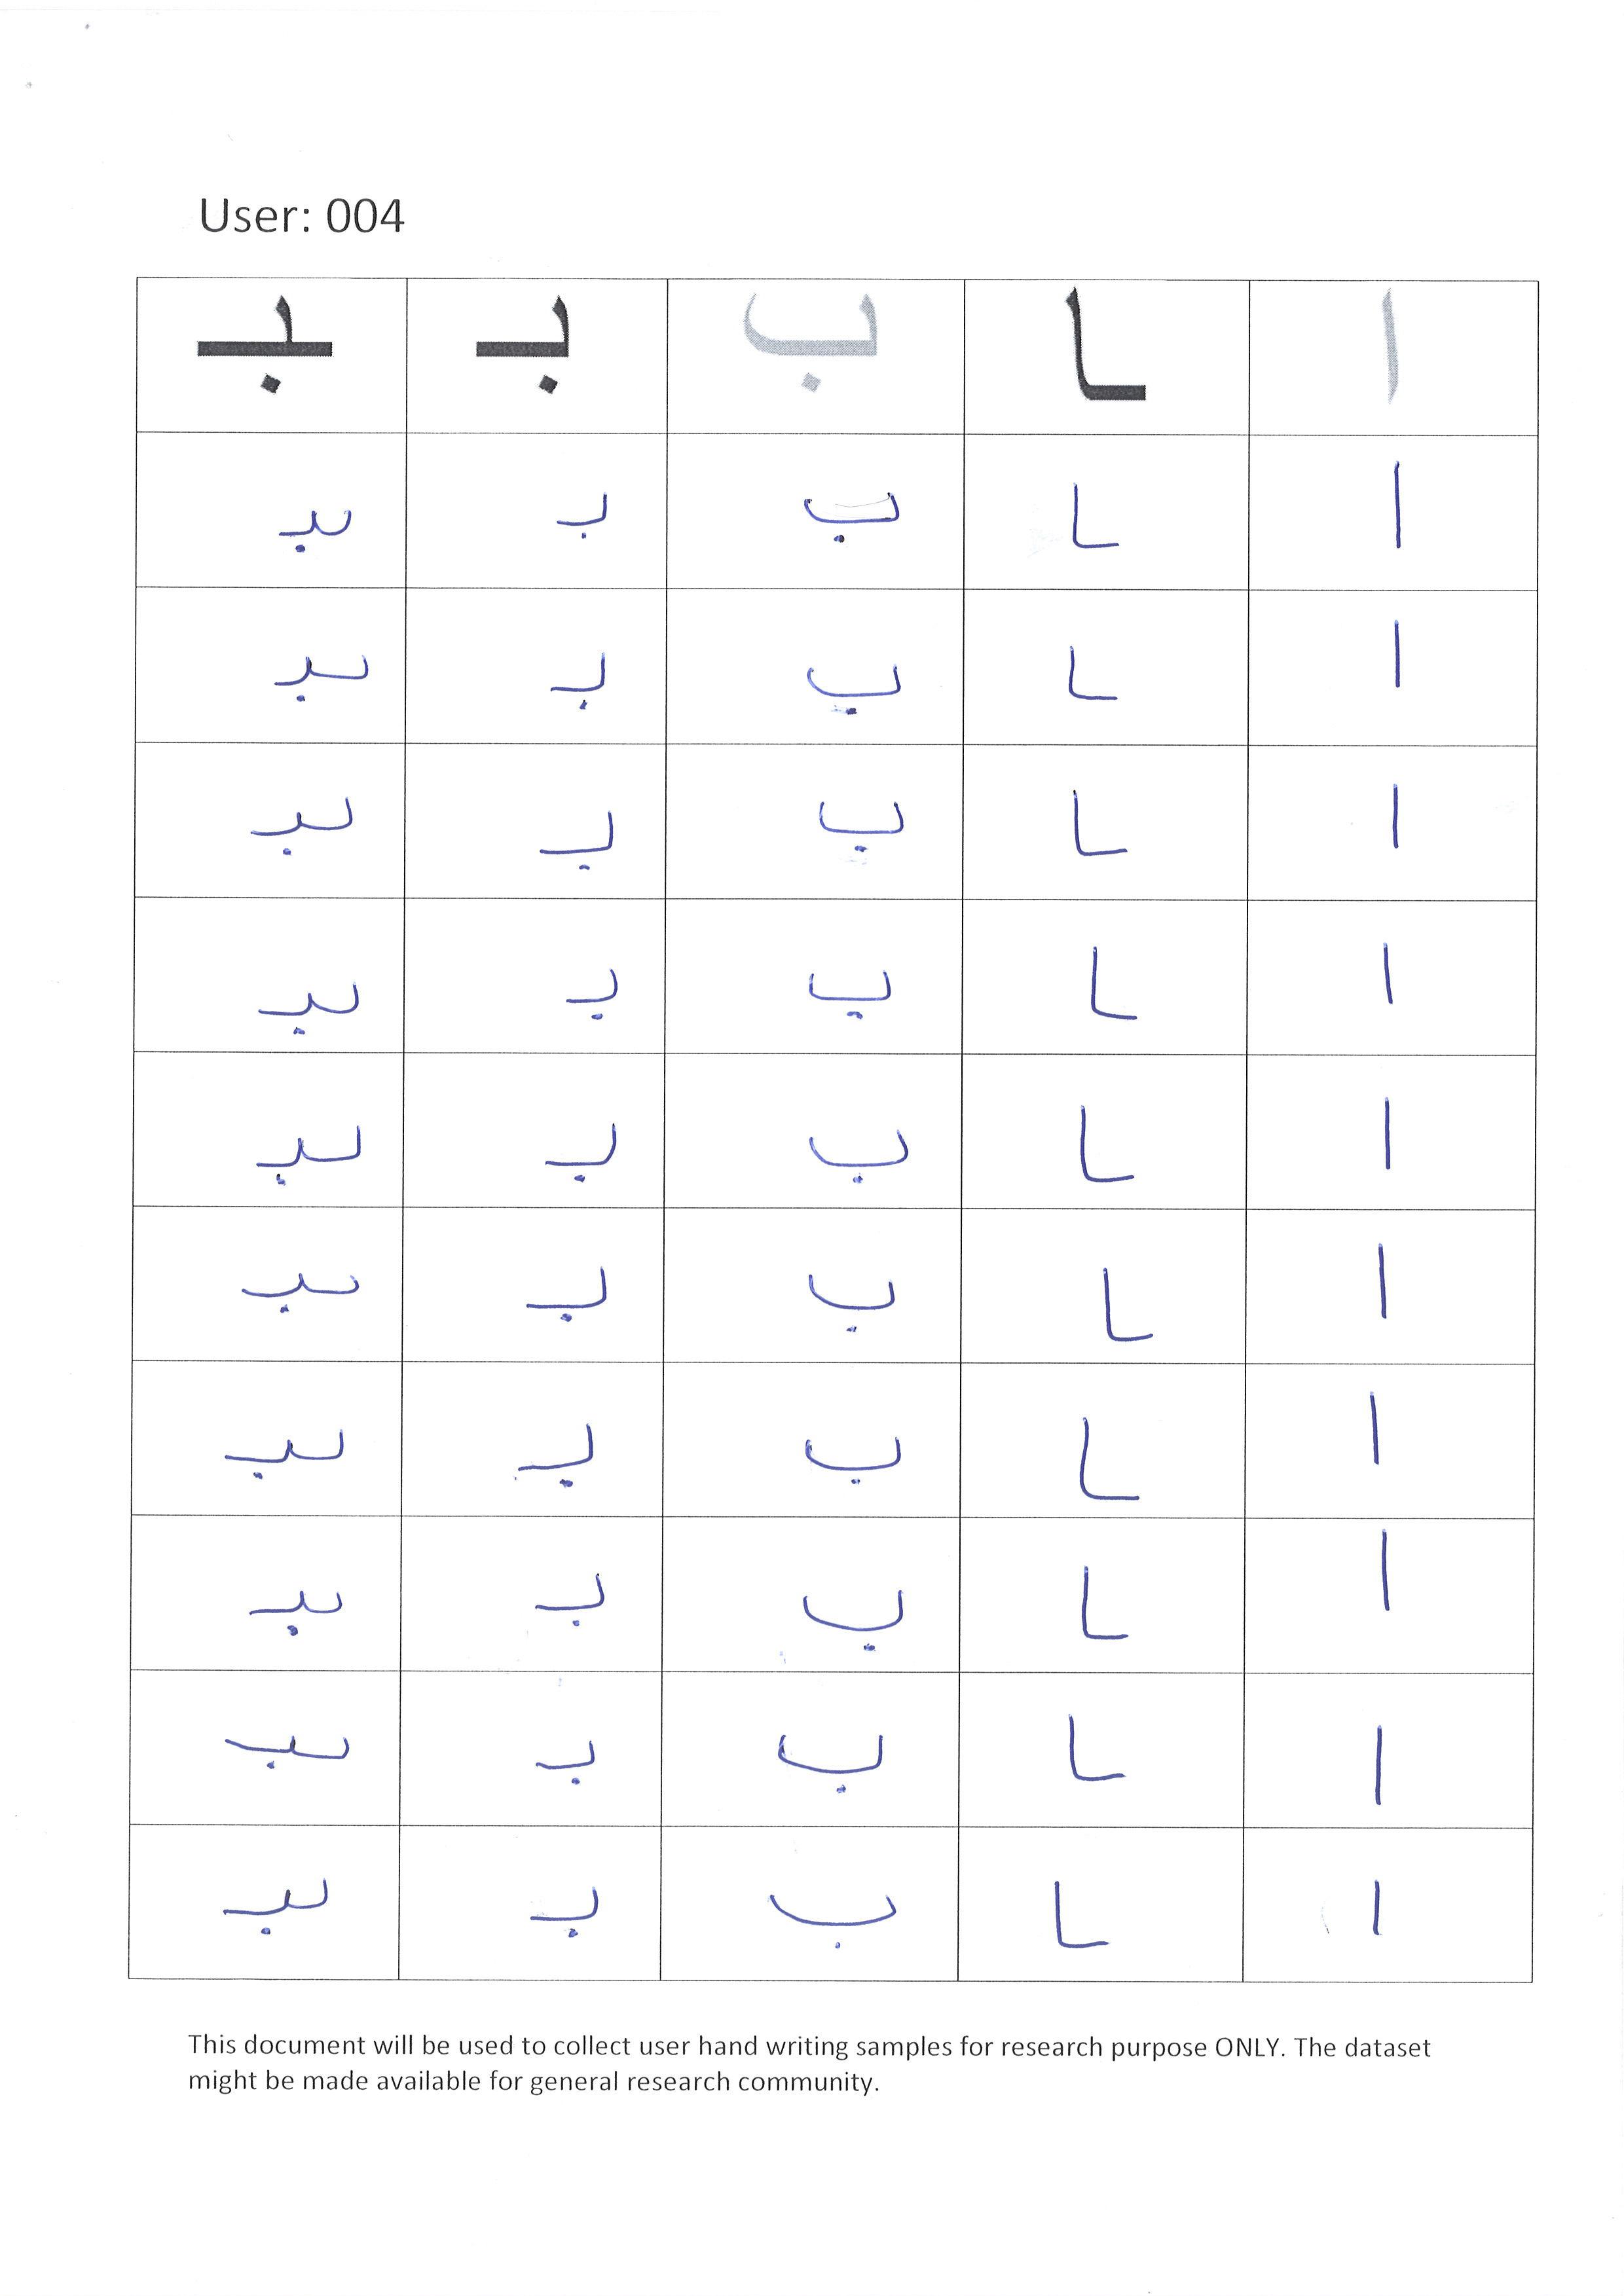 User: 004
ا ـا ب بـ ـبـ
ا ـا ب بـ ـبـ
ا ـا ب بـ ـبـ
ا ـا ب بـ ـبـ
ا ـا ب بـ ـبـ
ا ـا ب بـ ـبـ
ا ـا ب بـ ـبـ
ا ـا ب بـ ـبـ
ا ـا ب بـ ـبـ
ا ـا ب بـ ـبـ
ا ـا ب بـ ـبـ
This document will be used to collect user hand writing samples for research purpose ONLY. The dataset
might be made available for general research community.